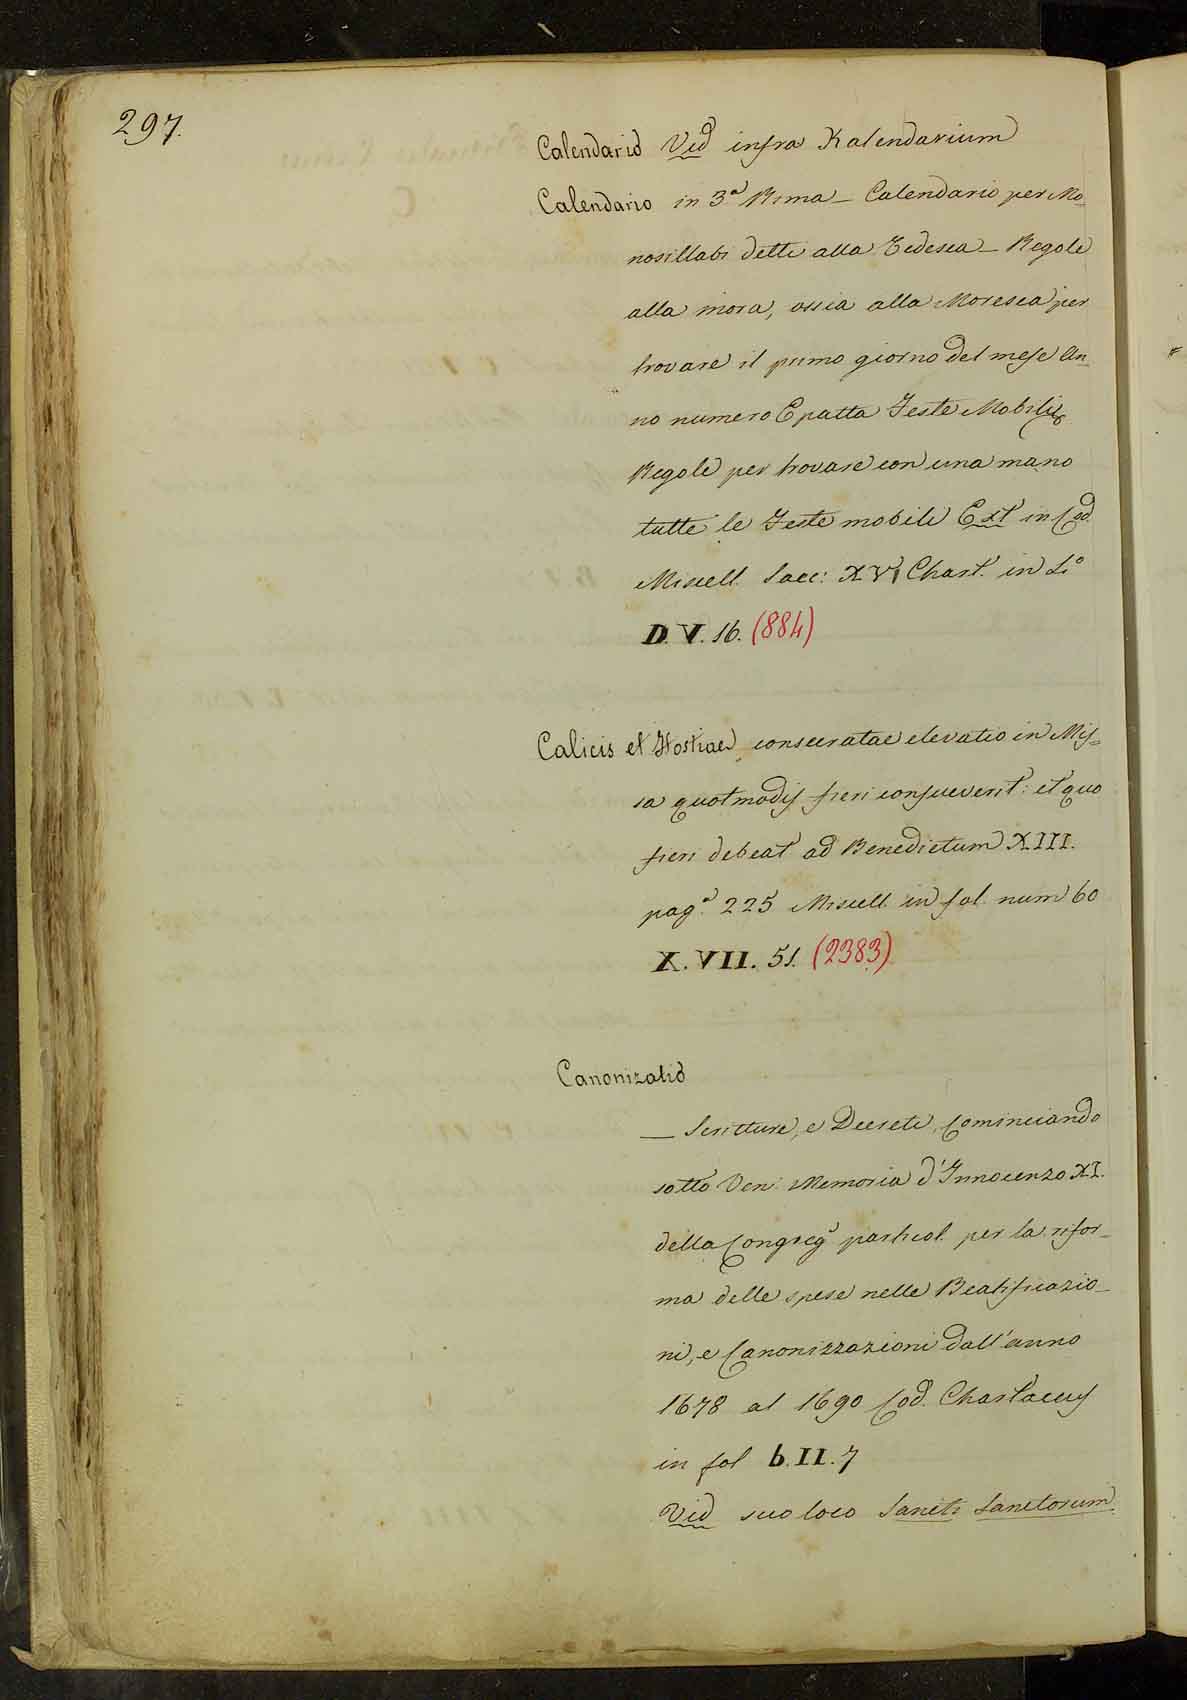 297.
Calendario Vid infra Kalendarium
Calendario in 3.ª Rima_ Calendario per Mo-
nosillabi detti alla Tedesca_ Regole
alla mora, ossia alla Moresca per
trovare il primo giorno del mese An-
no numero Epatta Feste Mobili,
Regole per trovare con una mano
tutte le Feste mobili Ext in Cod.
Miscell. Saec: XVI Chart. in 4.º
D. V. 16. (884)
Calicis et Hostiae consecratae elevatio in Mis=
sa quot modis fieri consueverit: et quo
fieri debeat ad Benedictum XIII.
pag.ª 225 Miscell. in fol. num 60
X. VII. 51. (2383)
Canonizatio
— Scritture, e Decreti, Cominciando
sotto Ven: Memoria d'Innocenzo XI.
della Congreg.ª particol. per la rifor-
ma delle spese nelle Beatificazio-
ni, e Canonizzazioni dall'anno
1678 al 1690 Cod. Chartaceus
in fol b. II. 7
Vid suo loco Sancti Sanctorum